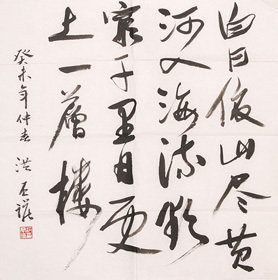 白日依山尽黄
河入海流欲
窮千里目更
上一層楼
癸未年仲春 洪